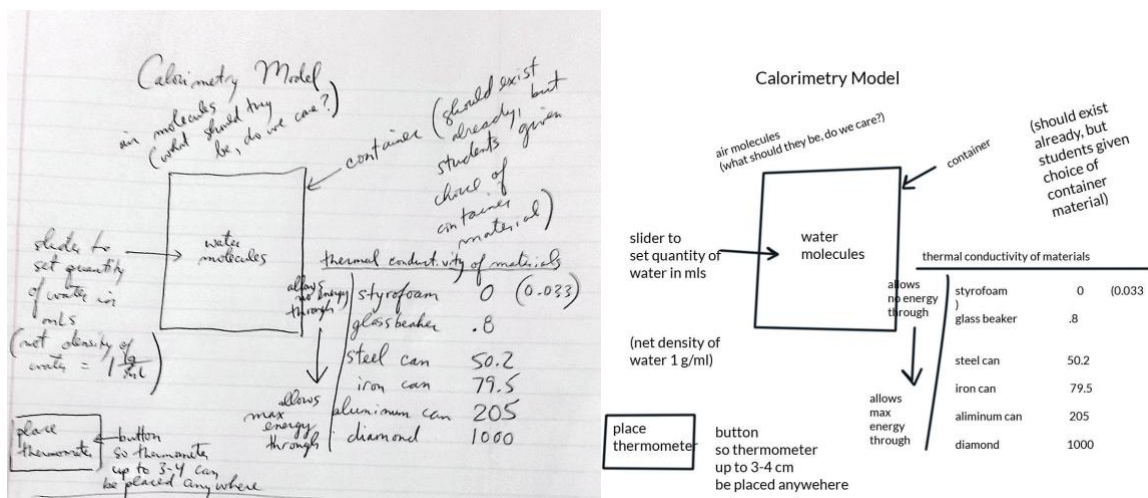 Calorimetry Model
air molecules
(what should they
be, do we care?)
container
(should exist
already, but
students given
choice of
container
material)
slider to
set quantity
of water in
mLs
(net density of
water = 1 g/mL)
water
molecules
thermal conductivity of materials
allows
no energy
through
styrofoam 0 (0.033)
glass beaker .8
steel can 50.2
iron can 79.5
aluminum can 205
diamond 1000
allows
max
energy
through
place
thermometer
button
so thermometer
up to 3-4 can
be placed anywhere
Calorimetry Model
air molecules
(what should they be, do we care?)
container
(should exist
already, but
students given
choice of
container
material)
slider to
set quantity of
water in mls
water
molecules
(net density of
water 1 g/ml)
thermal conductivity of materials
allows
no energy
through
styrofoam 0 (0.033
)
glass beaker .8
steel can 50.2
iron can 79.5
aliminum can 205
diamond 1000
allows
max
energy
through
place
thermometer
button
so thermometer
up to 3-4 cm
be placed anywehere